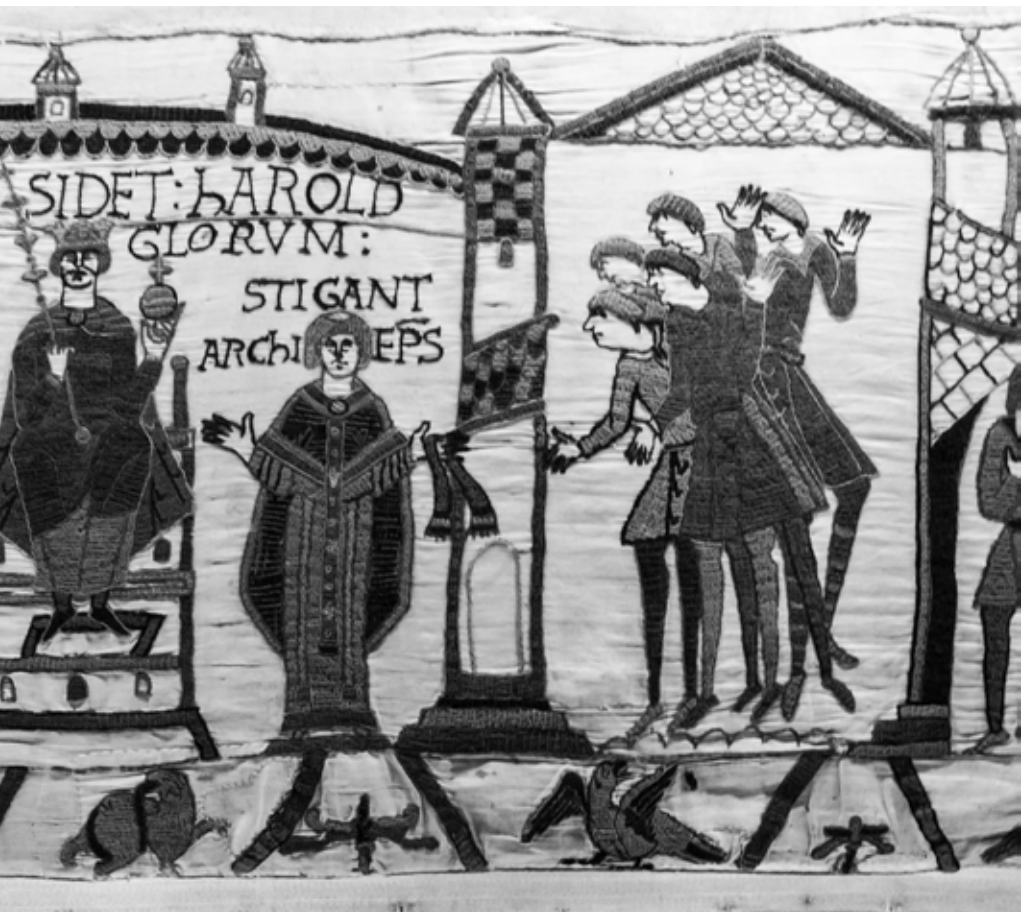 SIDET: hAROLD
GLORVM:
STIGANT
ARChI EP̅S